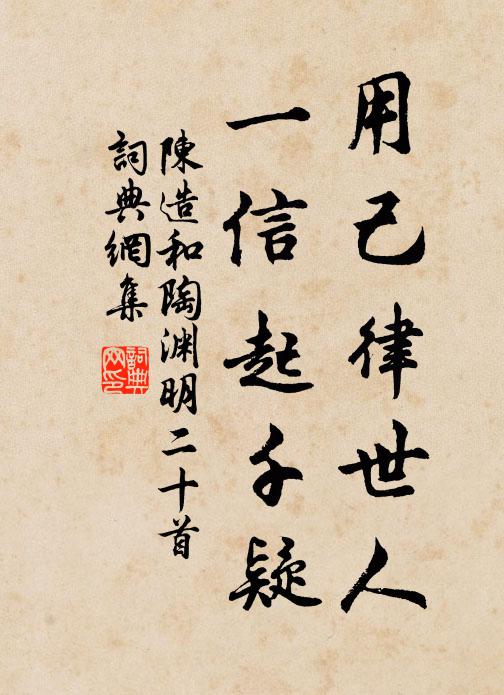 用己律世人
一信起千疑
陳造和陶淵明二十首
詞典網集
詞典網印